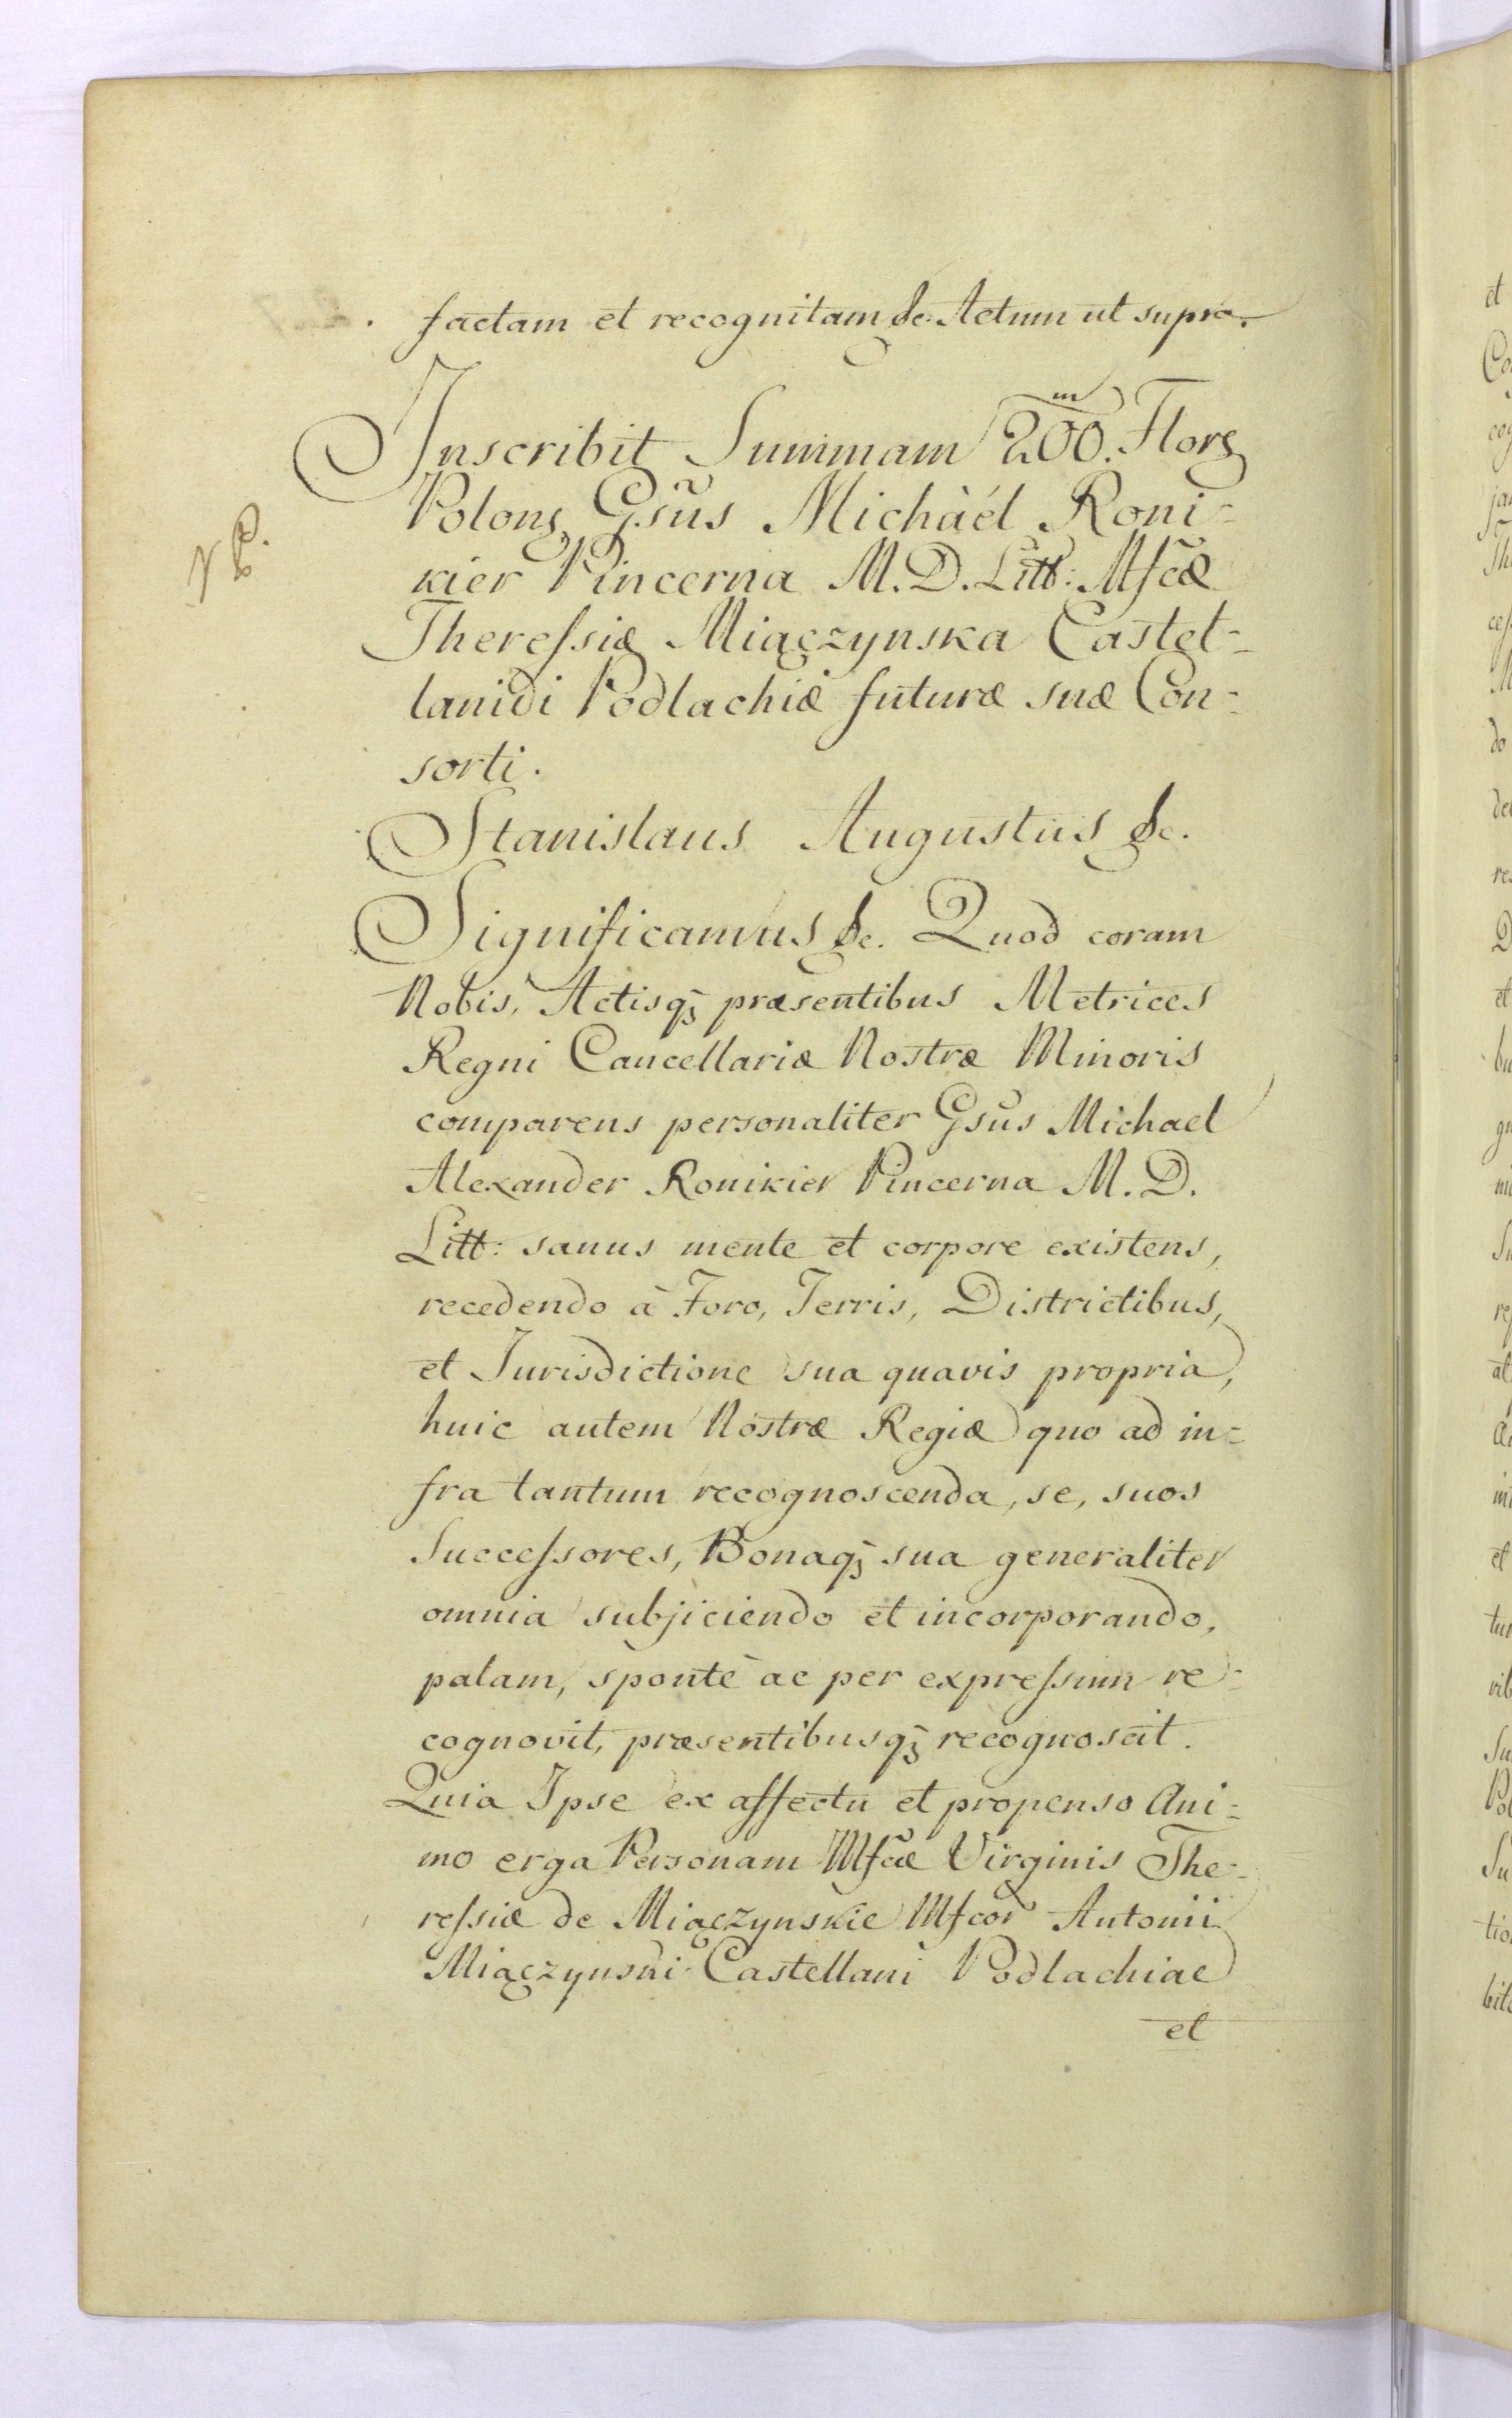 factam et recognitam &c. Actum ut supra.
Inscribit Summam 200.m Floreg
Polong Gsũs Michàél Roni-
kier Pincerna M. D. Litt: Mfcæ
Therefsiæ Miączynska Castel-
lanidi Podlachiæ futuræ suæ Con-
sorti.
Stanislaus Augustus &c.
Significamus &c. Quod coram
Nobis, Actisq; præsentibus Metrices
Regni Cancellariæ Nostræ Minoris
comparens personaliter Gsũs Michael
Alexander Ronikier Pincerna M. D.
Litt: sanus mente et corpore existens,
recedendo à Foro, Terris, Districtibus,
et Jurisdictione sua quavis propria,
huic autem Nostræ Regiæ quo ad in-
fra tantum recognoscenda, se, suos
Succefsores, Bonaq; sua generaliter
omnia subjiciendo et incorporando,
palam, spontè ac per exprefsum re-
cognovit, præsentibusq; recognoscit.
Quia Ipse ex affectu et propenso Ani-
mo erga Personam Mfcæ Virginis The-
refsiæ de Miączynskie Mfcor Antonii
Miączynski Castellani Podlachiae
et